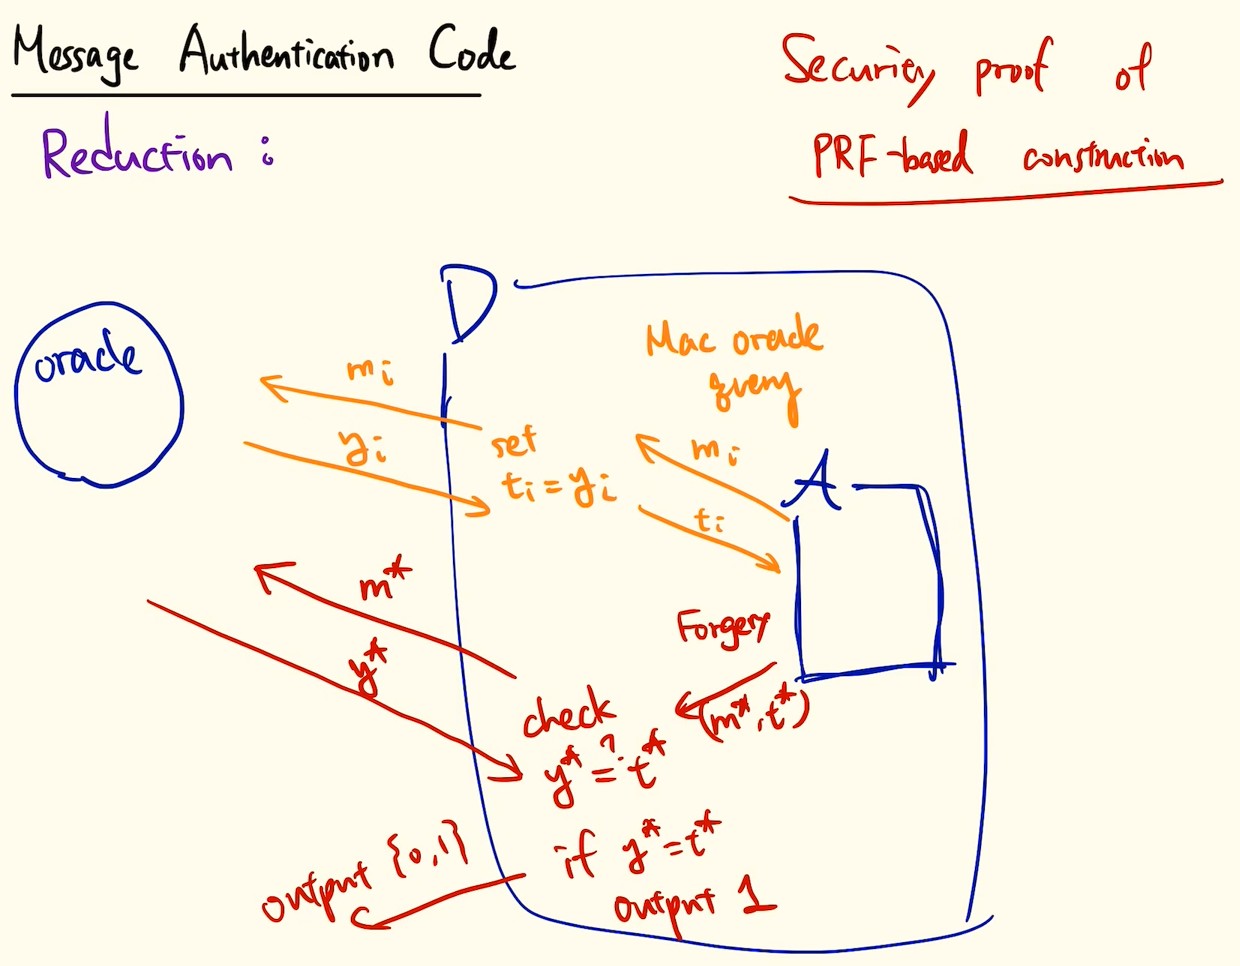 Message Authentication Code
Security proof of
PRF-based construction
Reduction :
D
oracle
Mac oracle
query
m_i
y_i
set
t_i = y_i
m_i
t_i
A
m*
y*
Forgery
(m*, t*)
check
y* =? t*
if y* = t*
output 1
output {0,1}